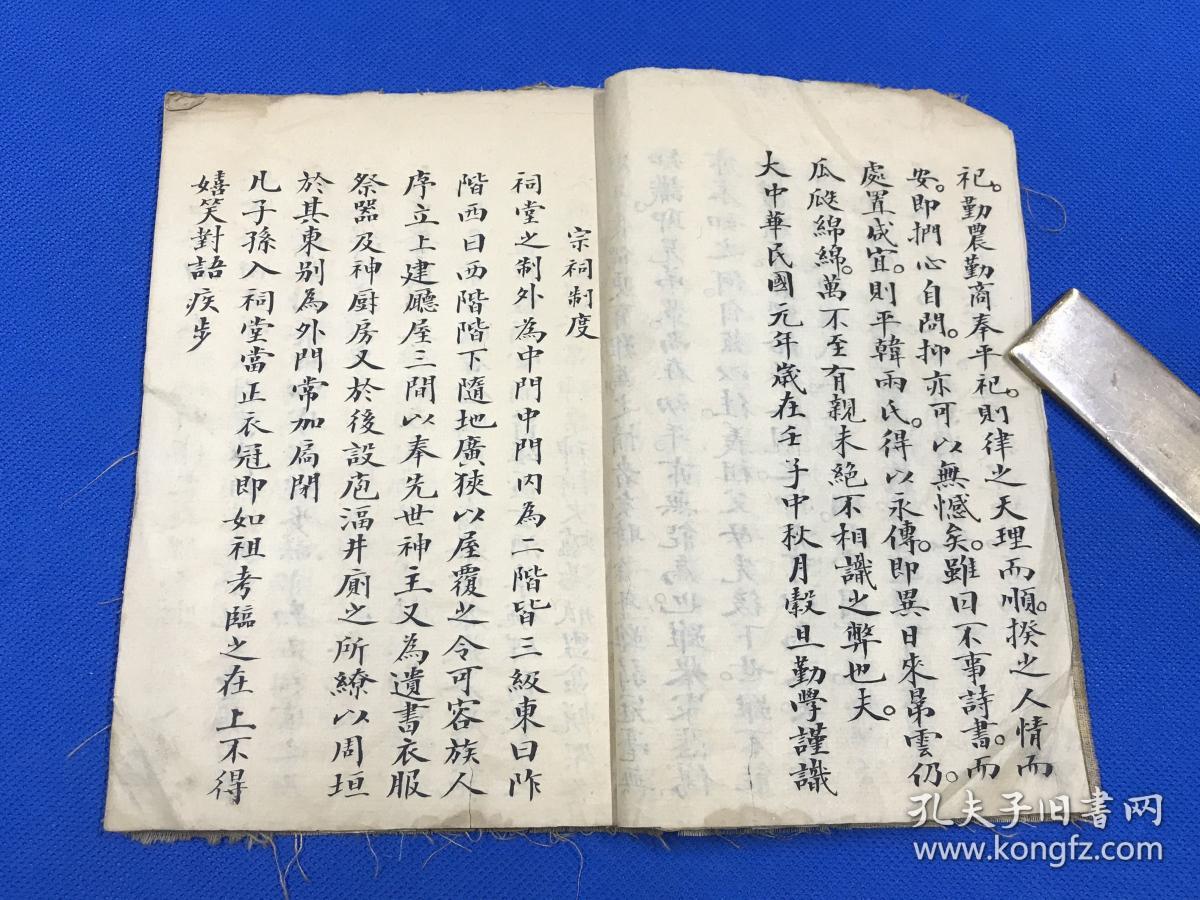 祀。勤農勤商奉平祀。則律之天理而順。揆之人情而
安。即捫心自問。抑亦可以無憾矣。雖曰不事詩書。而
處置咸宜。則平韓兩氏。得以永傳。即異日來昴雲仍。
瓜瓞綿綿。萬不至有親未絕不相識之弊也夫。
大中華民國元年歲在壬子中秋月穀旦勤學謹識
宗祠制度
祠堂之制外為中門中門内為二階皆三級東曰阼
階西曰西階階下隨地廣狹以屋覆之令可容族人
序立上建廳屋三間以奉先世神主又為遺書衣服
祭器及神厨房又於後設庖湢井廁之所繚以周垣
於其東别為外門常加扃閉
凡子孫入祠堂當正衣冠即如祖考臨之在上不得
嬉笑對語疾步
孔夫子旧书网
www.kongfz.com